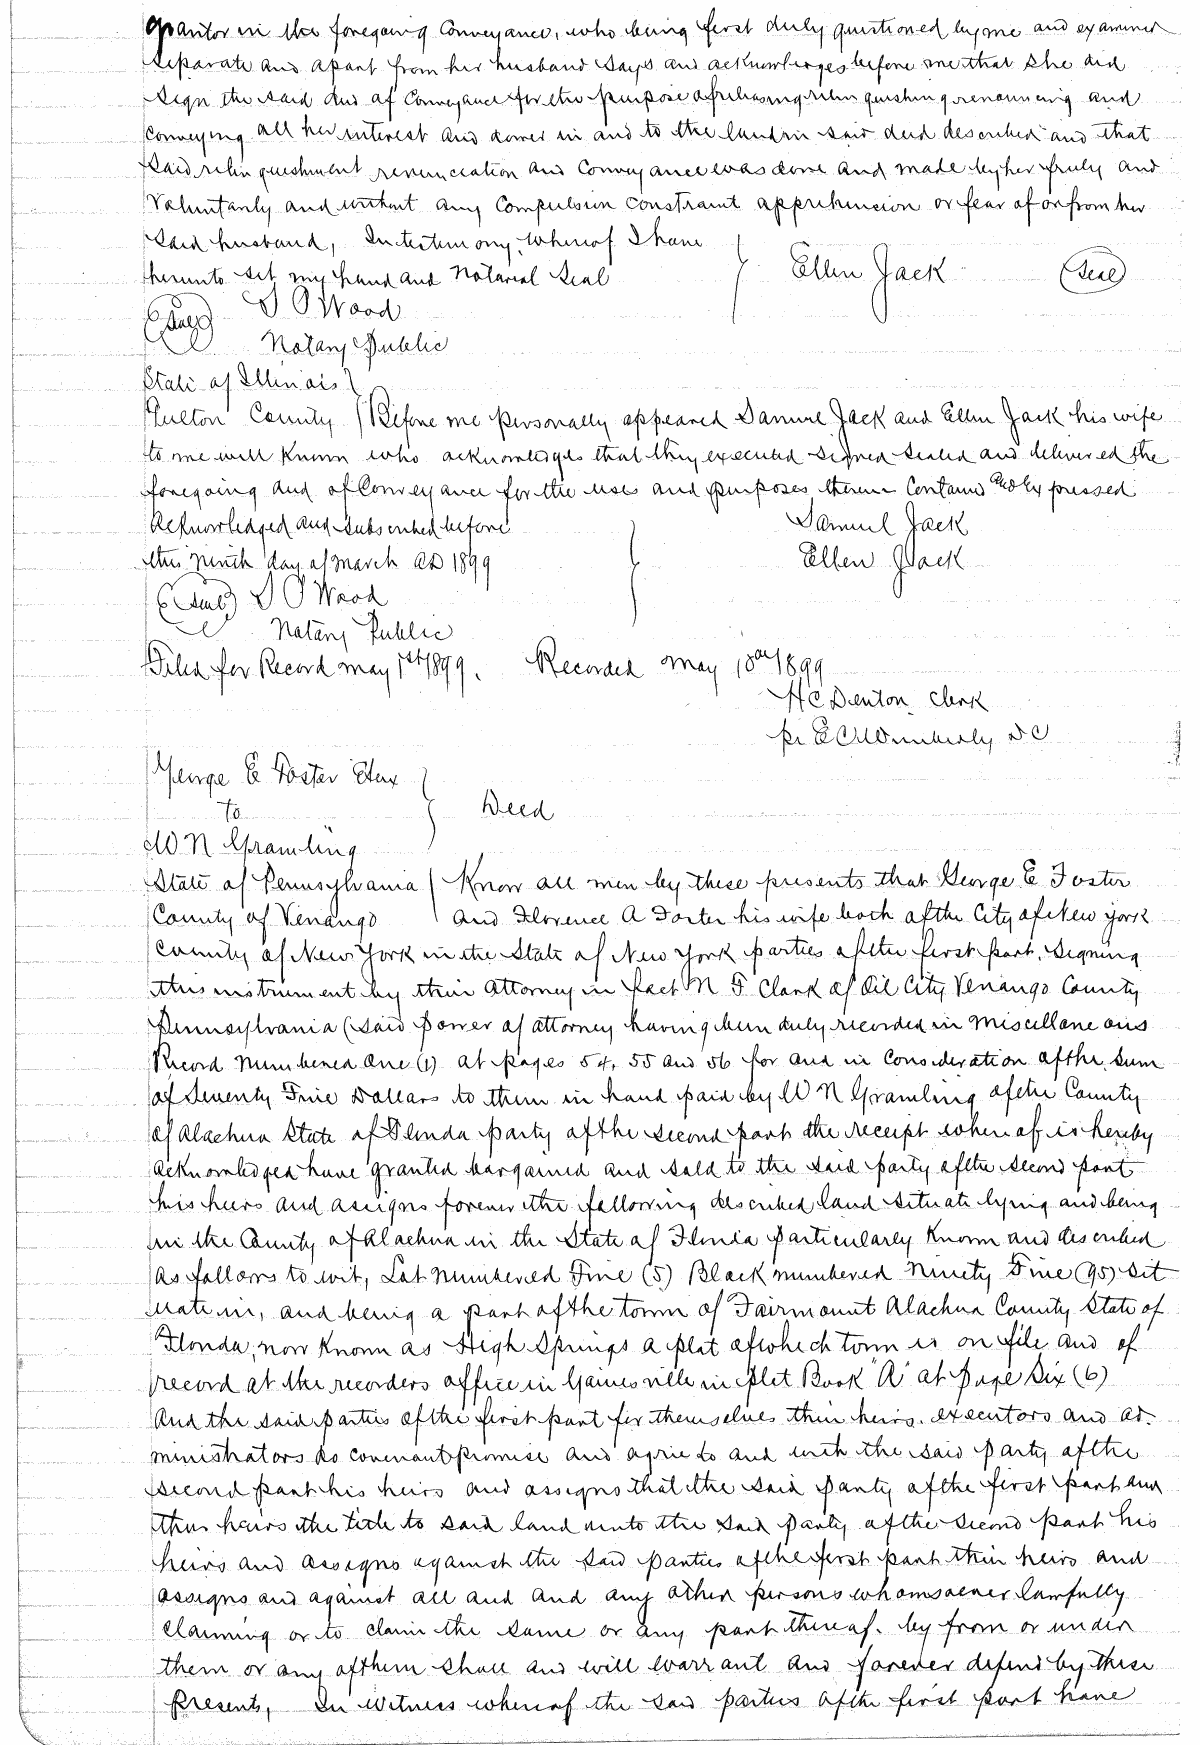 Grantor in the foregoing Conveyance, who being first duly questioned by me and examined
separate and apart from her husband says and acknowledges before me that she did
sign the said deed of Conveyance for the purpose of releasing relinquishing renouncing and
conveying all her interest and dower in and to the land in said deed described and that
said relinquishment renunciation and Conveyance was done and made by her freely and
voluntarily and without any Compulsion constraint apprehension or fear of or from her
said husband, In testimony whereof I have
hereunto set my hand and Notarial Seal
Ellen Jack (Seal)
(Seal) S O Wood
Notary Public
State of Illinois
Fulton County Before me personally appeared Samuel Jack and Ellen Jack his wife
to me well known who acknowledges that they executed signed sealed and delivered the
foregoing deed of Conveyance for the uses and purposes therein Contained and expressed
Acknowledged and subscribed before Samuel Jack
this ninth day of March AD 1899 Ellen Jack
(Seal) S O Wood
Notary Public
Filed for Record May 1st 1899. Recorded May 18th 1899
H C Denton Clerk
pr E C Wimberly D C
George E Foster Etux
To Deed
W N Gramling
State of Pennsylvania Know all men by these presents that George E Foster
County of Venango and Florence A Foster his wife both of the City of New York
County of New York in the State of New York parties of the first part, Signing
this instrument by their Attorney in fact M F Clark of Oil City Venango County
Pennsylvania (said power of attorney having been duly recorded in Miscellaneous
Record Numbered One (1) at pages 54, 55 and 56 for and in Consideration of the sum
of Seventy Five Dollars to them in hand paid by W N Gramling of the County
of Alachua State of Florida party of the second part the receipt whereof is hereby
acknowledged have granted bargained and sold to the said party of the second part
his heirs and assigns forever the following described land situate lying and being
in the County of Alachua in the State of Florida particularly known and described
as follows to wit, Lot numbered Five (5) Block numbered Ninety Five (95) sit
uate in, and being a part of the town of Fairmount Alachua County State of
Florida, now known as High Springs a plat of which town is on file and of
record at the recorders office in Gainesville in Plat Book "A" at Page Six (6)
And the said parties of the first part for themselves their heirs, executors and ad-
ministrators do covenant promise and agree to and with the said party of the
second part his heirs and assigns that the said party of the first part and
their heirs the title to said land unto the said party of the second part his
heirs and assigns against the said parties of the first part their heirs and
assigns and against all and and any other persons whomsoever lawfully
claiming or to claim the same or any part thereof, by from or under
them or any of them shall and will warrant and forever defend by these
presents, In witness whereof the said parties of the first part have